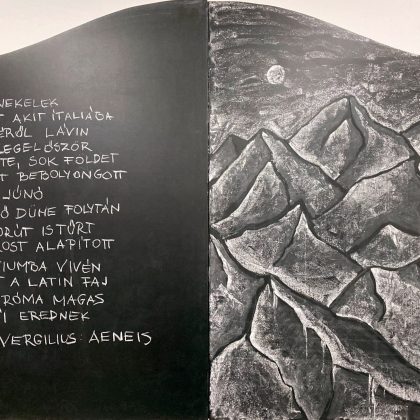 NEKELEK
AKIT ITÁLIÁBA
LÁVIN
LEGELŐSZÖR
TE, SOK FÖLDET
T BEBOLYONGOTT
JÚNÓ
Ó DÜHE FOLYTÁN
ORÚT IS TŰRT
ROST ALAPÍTOTT
TIUMBA VIVÉN
T A LATIN FAJ
RÓMA MAGAS
I EREDNEK
VERGILIUS: AENEIS